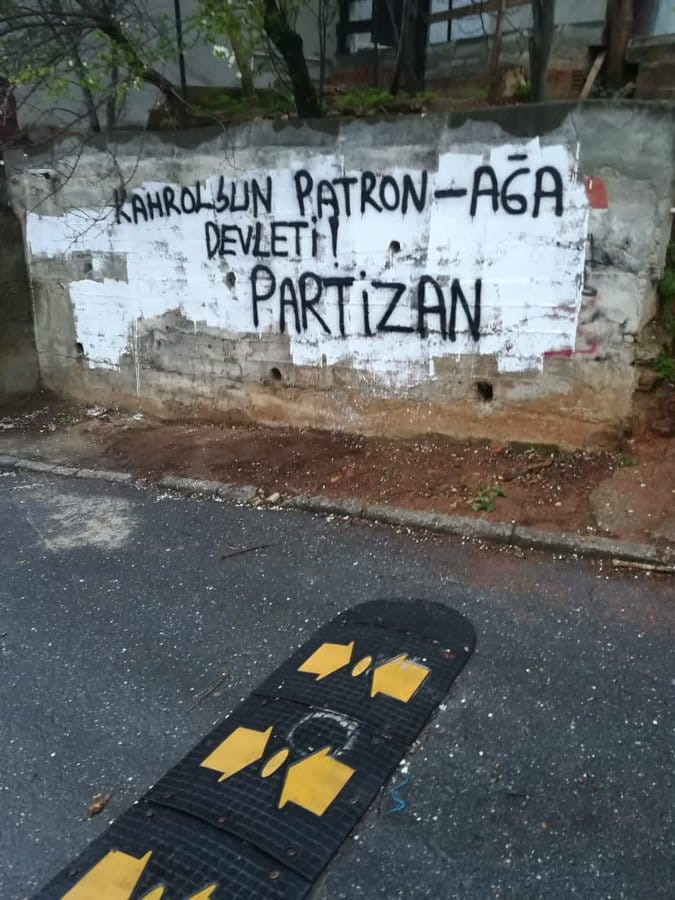 KAHROLSUN PATRON-AĞA
DEVLETİ!
PARTİZAN